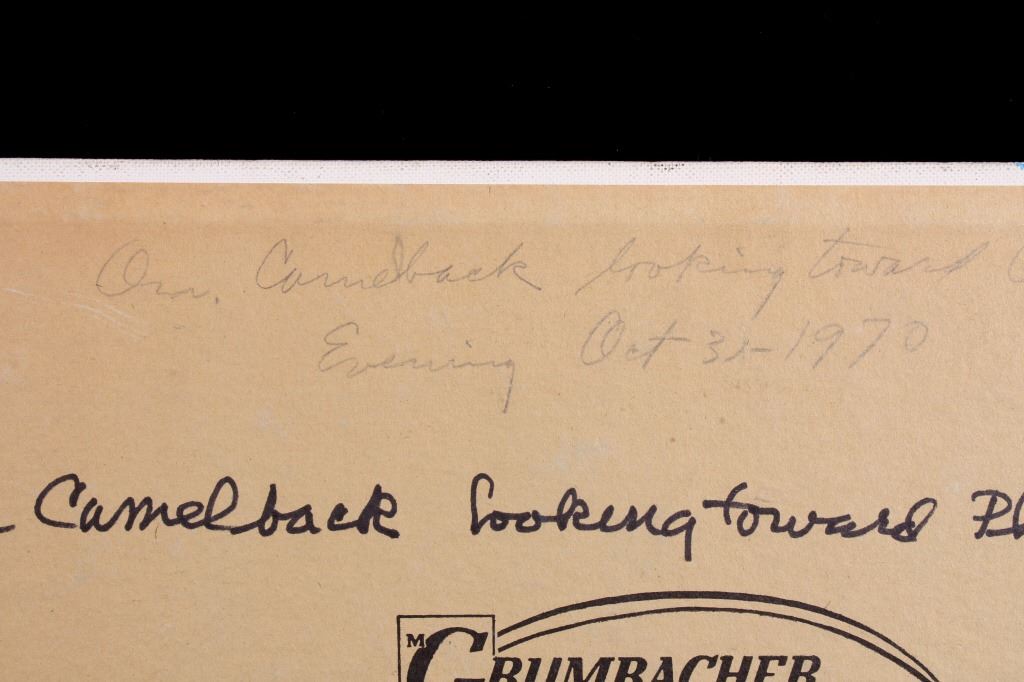 On. Camelback looking toward
Evening Oct 31-1970
Camelback looking toward Ph
M GRUMBACHER